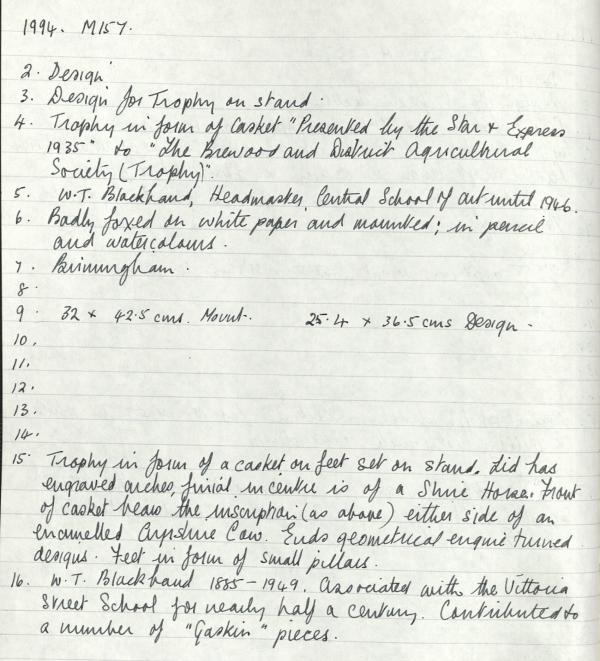 1994. M157.
2. Design
3. Design for Trophy on stand.
4. Trophy in form of casket "Presented by the Star & Express
1935" to "The Brewood and District Agricultural
Society (Trophy)".
5. W.T. Blackband, Headmaster, Central School of Art until 1946.
6. Badly foxed on white paper and mounted; in pencil
and watercolours.
7. Birmingham.
8.
9. 32 x 42.5 cms. Mount. 25.4 x 36.5 cms Design.
10.
11.
12.
13.
14.
15. Trophy in form of a casket on feet set on stand. Lid has
engraved arches, finial in centre is of a Shire Horse. Front
of casket bears the inscription (as above) either side of an
enamelled Ayrshire Cow. Ends geometrical engine turned
designs. Feet in form of small pillars.
16. W.T. Blackband 1885-1949. Associated with the Vittoria
Street School for nearly half a century. Contributed to
a number of "Gaskin" pieces.